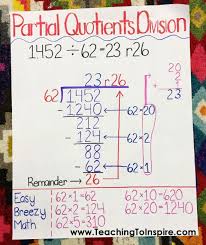 Partial Quotients Division
1452 ÷ 62 = 23 r26
23 r26
62 1452
-1240 62·20
212
-124 62·2
88
-62 62·1
Remainder → 26
20
2
+1
23
Easy 62×1=62 62×10=620
Breezy 62×2=124 62×20=1240
Math 62×5=310
www.TeachingToInspire.com